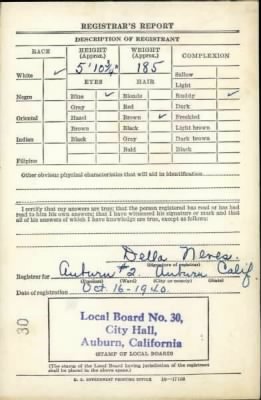 REGISTRAR'S REPORT
DESCRIPTION OF REGISTRANT
RACE HEIGHT (Approx.) WEIGHT (Approx.) COMPLEXION
5' 10 3/4" 185
White ✓ EYES HAIR Sallow
Light
Negro Blue ✓ Blonde Ruddy ✓
Gray Red Dark
Oriental Hazel Brown ✓ Freckled
Brown Black Light brown
Indian Black Gray Dark brown
Bald Black
Filipino
Other obvious physical characteristics that will aid in identification
I certify that my answers are true; that the person registered has read or has had
read to him his own answers; that I have witnessed his signature or mark and that
all of his answers of which I have knowledge are true, except as follows:
Della Neves.
(Signature of registrar)
Registrar for Auburn #2. Auburn Calif
(Precinct) (Ward) (City or county) (State)
Date of registration Oct 16-1940.
30
Local Board No. 30,
City Hall,
Auburn, California
(STAMP OF LOCAL BOARD)
(The stamp of the Local Board having jurisdiction of the registrant
shall be placed in the above space.)
U. S. GOVERNMENT PRINTING OFFICE 16—17105